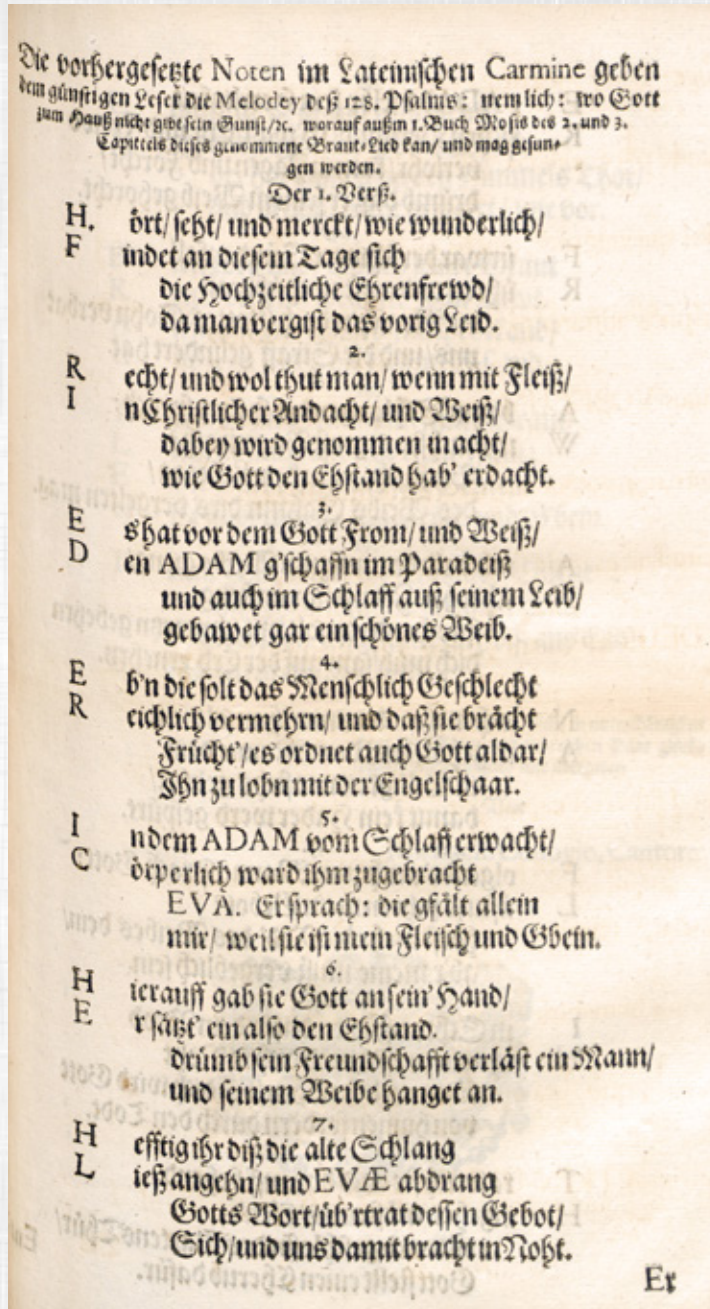 Die vorhergesetzte Noten im Lateinischen Carmine geben
dem günstigen Leser die Melodey deß 128. Psalms: nemlich: wo Gott
zum Hauß nicht gibt sein Gunst/ꝛc. worauf außm 1. Buch Mosis des 2. und 3.
Capittels dieses genommene Braut-Lied kan/ und mag gesun-
gen werden.
Der 1. Verß.
H. ört/ seht/ und merckt/ wie wunderlich/
F indet an diesem Tage sich
die Hochzeitliche Ehrenfrewd/
da man vergist das vorig Leid.
2.
R echt/ und wol thut man/ wenn mit Fleiß/
I n Christlicher Andacht/ und Weiß/
dabey wird genommen in acht/
wie Gott den Ehstand hab' erdacht.
3.
E s hat vor dem Gott From/ und Weiß/
D en ADAM g'schaffn im Paradeiß
und auch im Schlaff auß seinem Leib/
gebawet gar ein schönes Weib.
4.
E b'n die solt das Menschlich Geschlecht
R eichlich vermehrn/ und daß sie brächt
Frücht'/ es ordnet auch Gott aldar/
Ihn zu lobn mit der Engelschaar.
5.
I ndem ADAM vom Schlaff erwacht/
C örperlich ward ihm zugebracht
EVA. Er sprach: die gfält allein
mir/ weil sie ist mein Fleisch und Gbein.
6.
H ierauff gab sie Gott an sein' Hand/
E r sätzt' ein also den Ehstand.
drümb sein Freundschafft verläst ein Mann/
und seinem Weibe hanget an.
7.
H efftig ihr diß die alte Schlang
L ieß angehn/ und EVÆ abdrang
Gotts Wort/ üb'rtrat dessen Gebot/
Sich/ und uns damit bracht in Noht.
Er